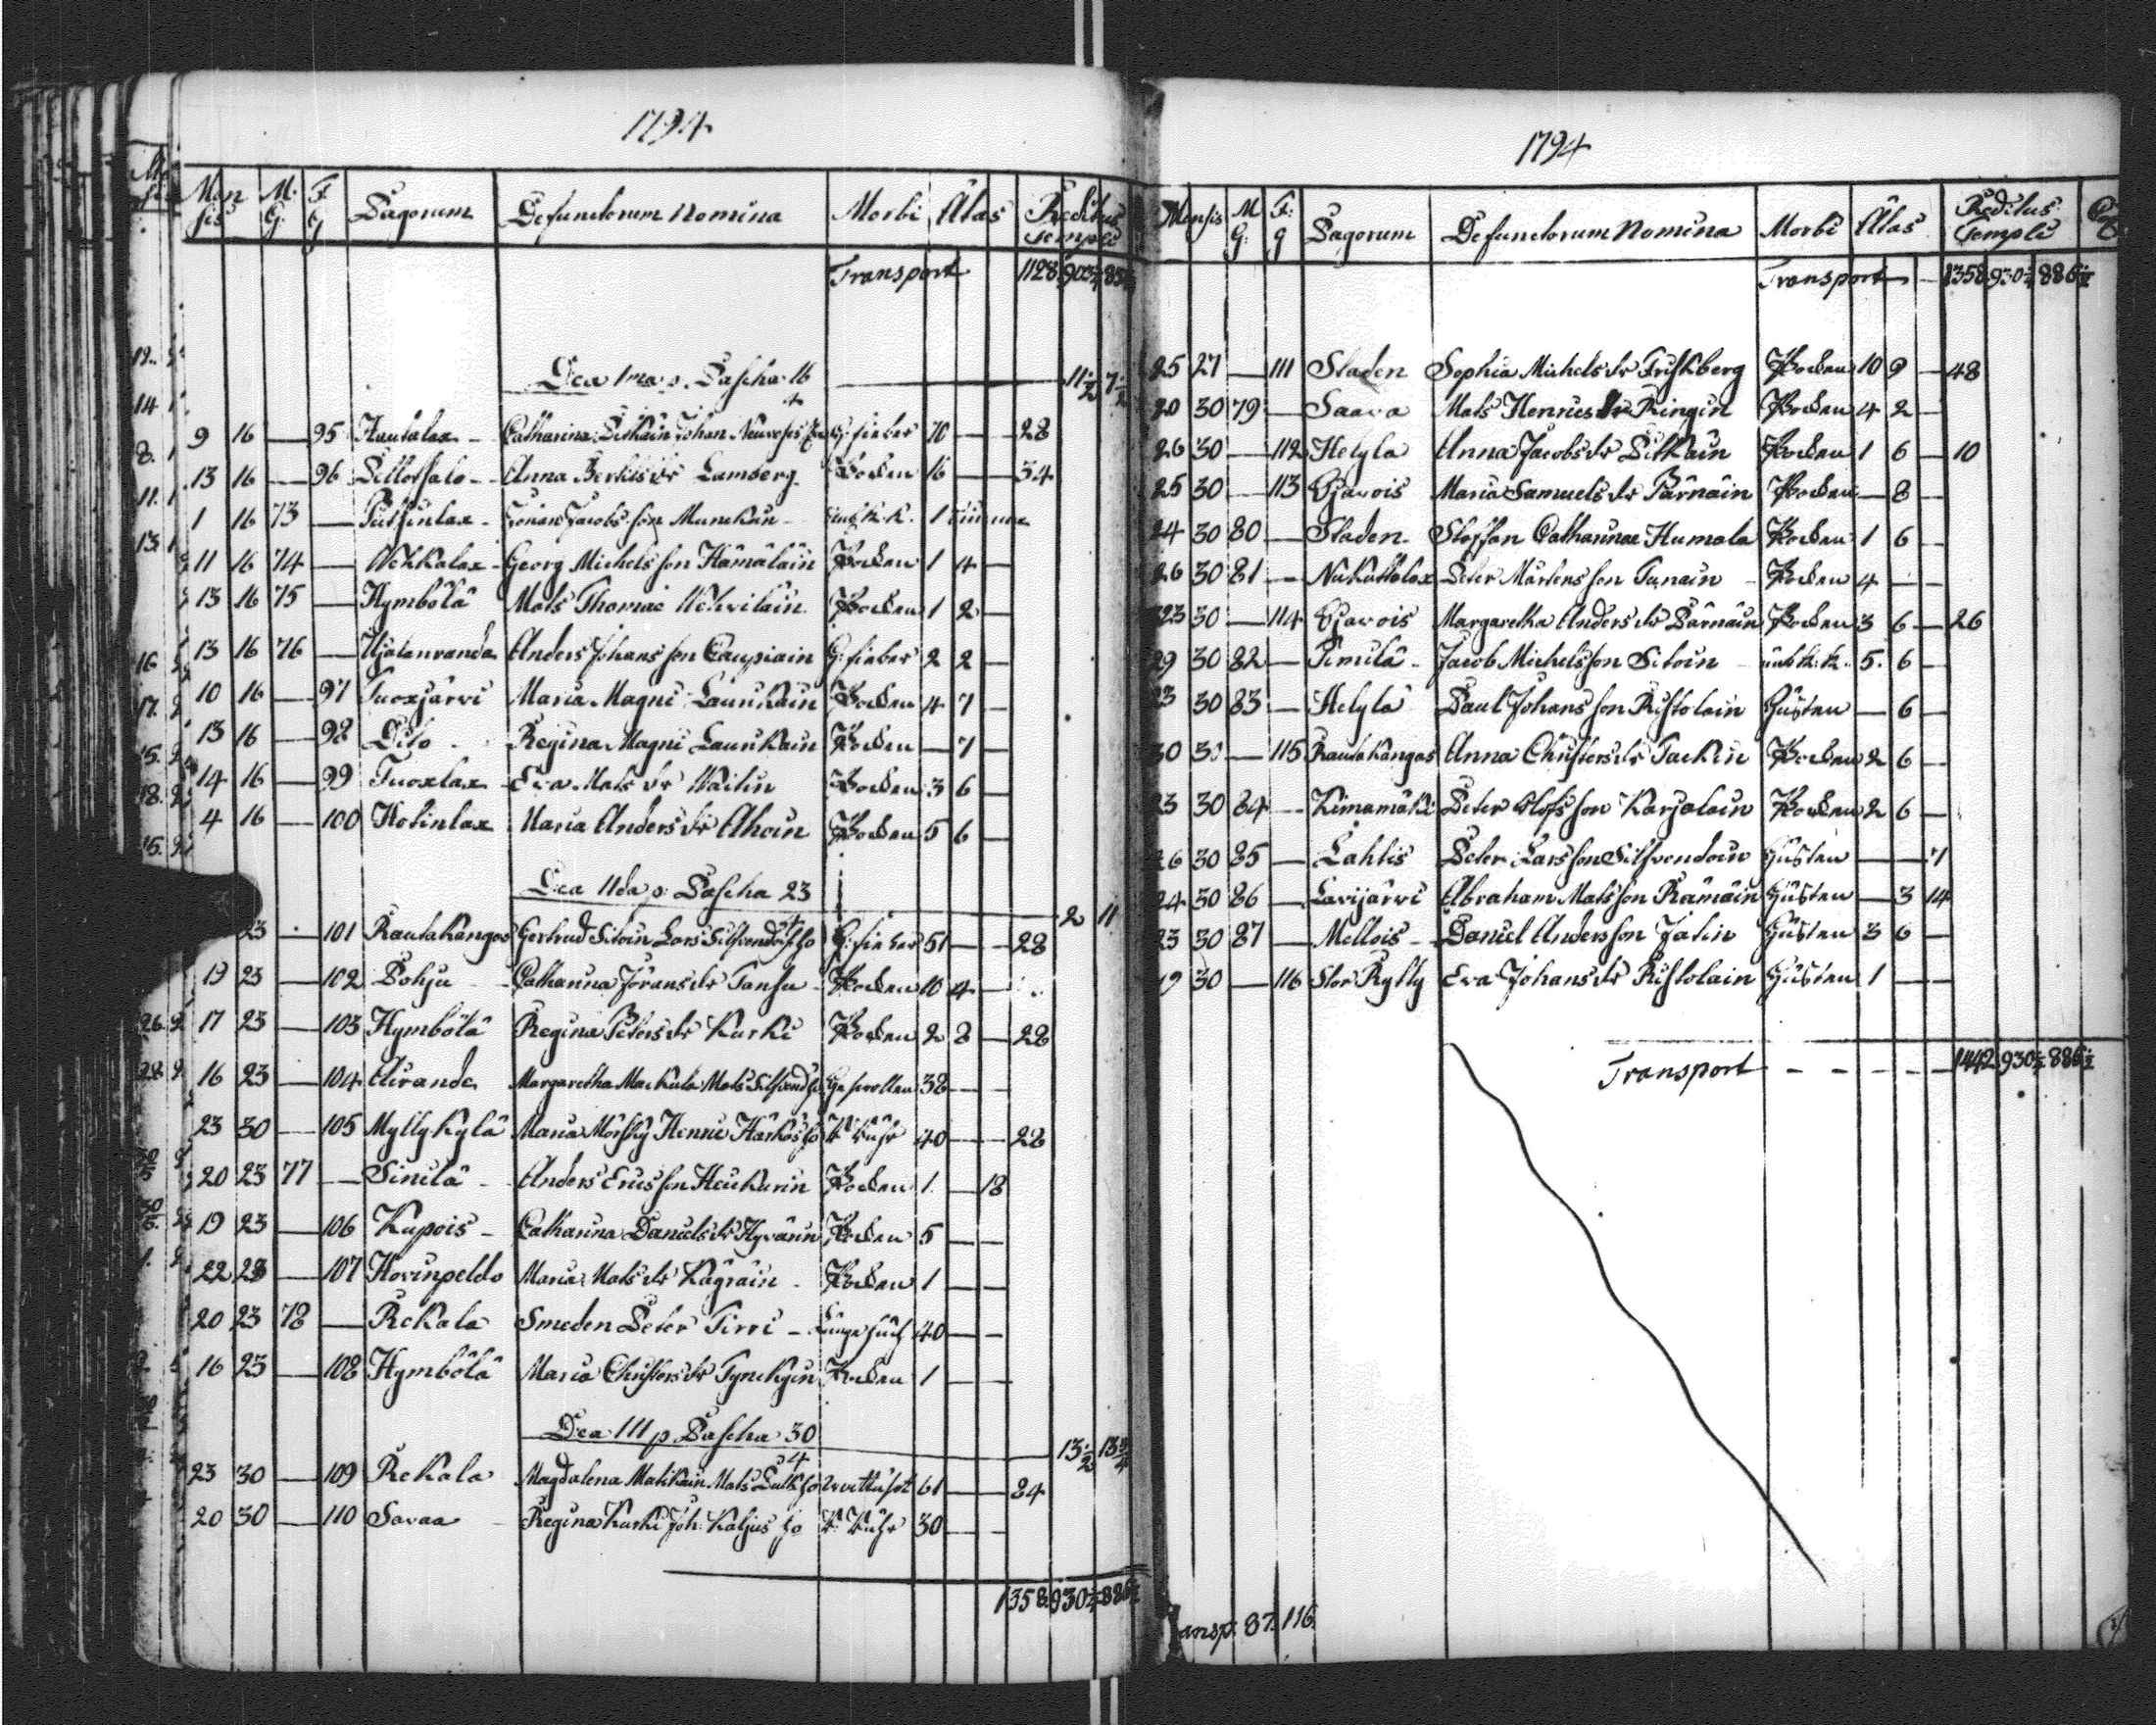 1794
Mensis M: G: F: G Pagorum Defunctorum Nomina Morbi Ætas Reditus Templi
Transport 1128 903
Dca 1ma p. Pascha 16/4 11½ 7½
9 16 — 95 Hautalax Catharina Pitkäin Johan G: fieber 70 — — 28
13 16 — 96 Pellotsalo Anna Bertilsdr Lamberg Pocken 16 — — 34
1 16 73 — Putsinlax Johan Jacobs son Munckän k. k. 1
11 16 74 — Wekkalax Georg Michels son Hämäläin Pocken 1 4 —
13 16 75 — Hymbölä Mats Thomæ Wehviläin Pocken 1 2 —
13 16 76 — Ujalanranda Anders Johans son Caupiain G: fieber 2 2 —
10 16 — 97 Tuoxjärvi Maria Magni Laurikain Pocken 4 7 —
13 16 — 98 Dito Regina Magni Laurikain Pocken — 7 —
14 16 — 99 Tuoxlax Eva Mats dr Waitin Pocken 3 6 —
4 16 — 100 Hotinlax Maria Anders dr Ahoin Pocken 5 6 —
Dca IIda p: Pascha 23/4 2 11
23 — 101 Rautakangas Gertrud Sitoin Lars Silfvendoin ho G: fieber 51 — — 28
19 23 — 102 Pohju Catharina Jörans dr Tansu Pocken 10 4 —
17 23 — 103 Hymbölä Regina Peters dr Kurki Pocken 2 8 — 28
16 23 — 104 Airanda Margaretha Mats 38 — —
23 30 — 105 Myllykylä Maria Mörsky Henric Härkös ho 40 — — 28
20 23 77 — Simila Anders Erics son Heickurin Pocken 1 — 18
19 23 — 106 Kupois Catharina Daniels dr Hyvärin Pocken 5 — —
22 23 — 107 Hovinpeldo Maria Mats dr Kägräin Pocken 1 — —
20 23 78 — Rekala Smeden Peter Tirri 40 — —
16 23 — 108 Hymbölä Maria Christers dr Tynckyin Pocken 1 — —
Dca III p Pascha 30/4 13½ 13¾
23 30 — 109 Rekala Magdalena Matikain Mats ho 61 — — 24
20 30 — 110 Savaa Regina Kurki Joh: Katjus ho 30 — —
1358 930½ 886½
1794
Mensis M G: F: g Pagorum Defunctorum Nomina Morbi Ætas Reditus Templi
Transport — 1358 930½ 886½
25 27 — 111 Staden Sophia Michels dr Friskberg Pocken 10 9 — 48
20 30 79 — Saava Mats Henrics Ringin Pocken 4 2 —
26 30 — 112 Helylä Anna Jacobs dr Pitkäin Pocken 1 6 — 10
25 30 — 113 Ojavois Maria Samuels dr Pärnäin Pocken — 8 —
24 30 80 — Staden Staffan Catharinae Humala Pocken 1 6 —
26 30 81 — Nukuttalax Peter Mårtens son Tunain Pocken 4 — —
23 30 — 114 Ojavois Margaretha Anders dr Pärnäin Pocken 3 6 — 26
29 30 82 — Pimilä Jacob Michelsson Sitoin 5 6 —
23 30 83 — Helylä Paul Johans son Ristolain Husten — 6 —
30 30 — 115 Rautakangas Anna Christers dr Tackin Pocken 2 6 —
23 30 84 — Kiimamäki Peter Olofs son Karjalain Pocken 2 6 —
26 30 85 — Lahtis Peter Lars son Silfvendoin Husten — — 7
24 30 86 — Lavijärvi Abraham Mats son Rämäin Husten — 3 14
23 30 87 — Mellois Daniel Anders son Jatin Husten 3 6 —
19 30 — 116 Stor Rytty Eva Johans dr Ristolain Husten 1 — —
Transport — — — — — 1442 930½ 886½
Transp: 87. 116.